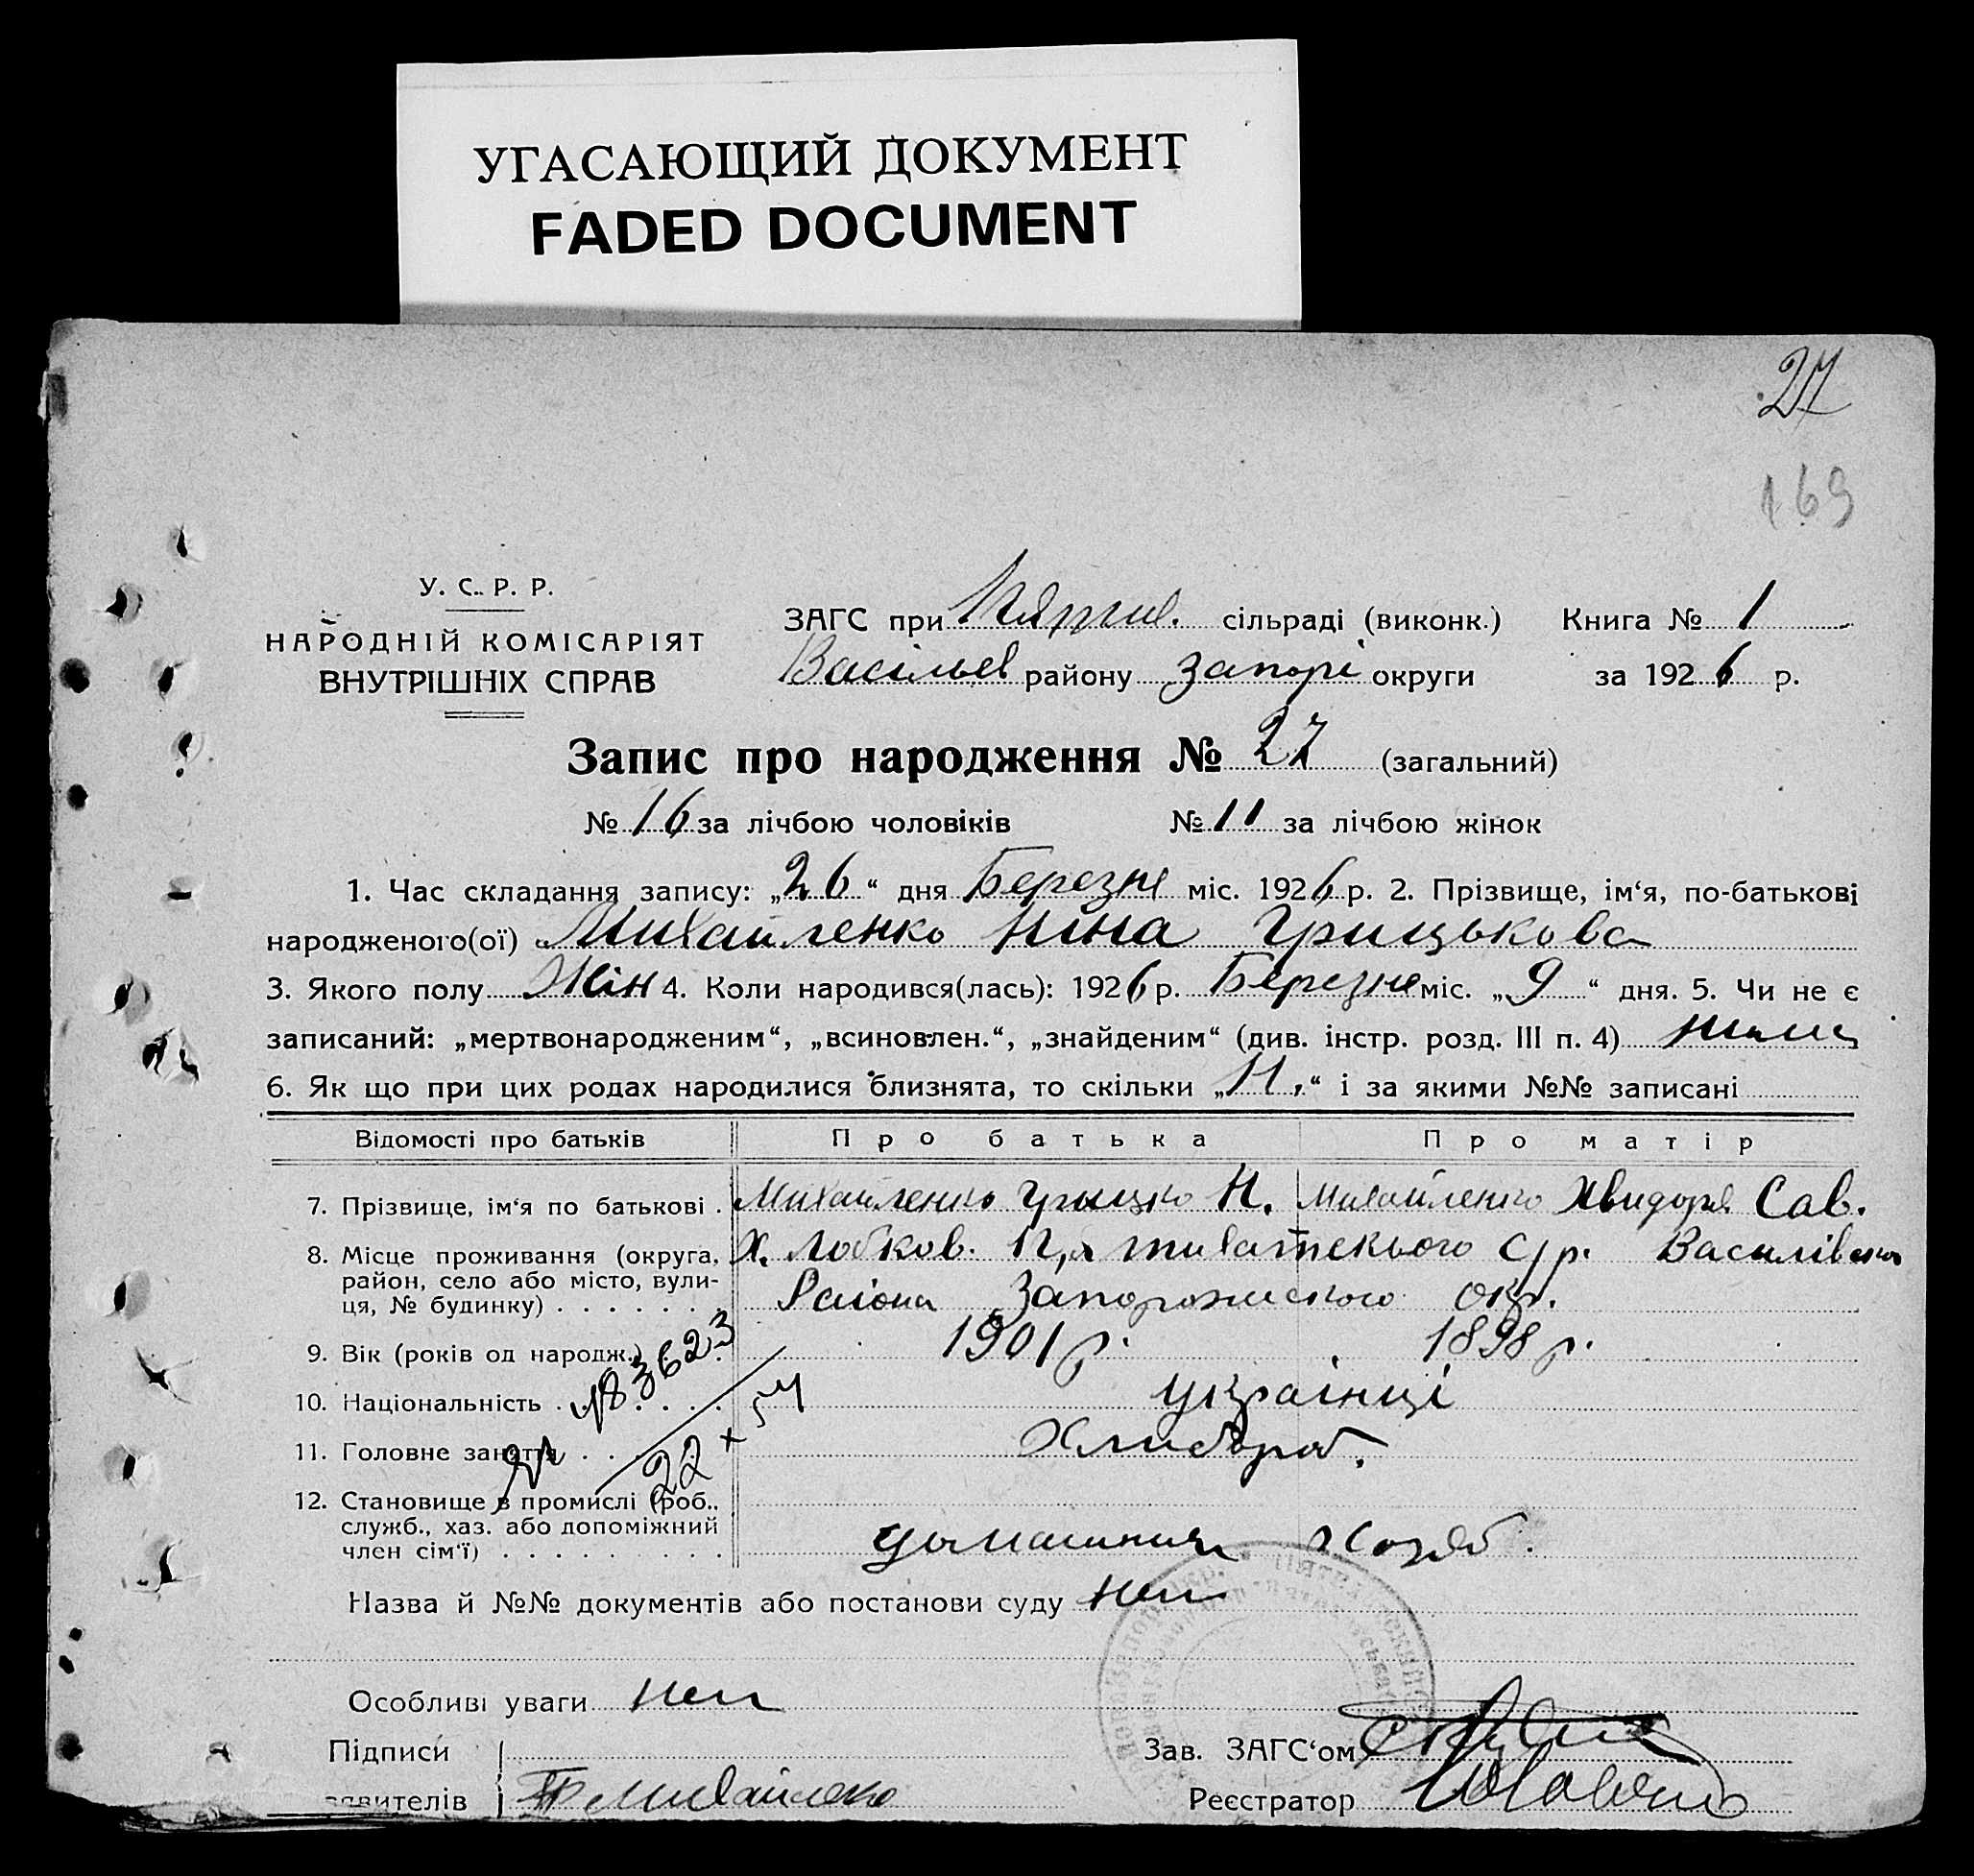 УГАСАЮЩИЙ ДОКУМЕНТ
FADED DOCUMENT
27
169
У. С. Р. Р.
НАРОДНІЙ КОМІСАРІЯТ
ВНУТРІШНІХ СПРАВ
ЗАГС при сільраді (виконк.) Книга № 1
Васильев району Запорі округи за 1926 р.
Запис про народження № 27 (загальний)
№ 16 за лічбою чоловіків № 11 за лічбою жінок
1. Час складання запису: „26“ дня Березня міс. 1926 р. 2. Прізвище, ім‘я, по-батькові
народженого(ої) Михайленко Ніна Грицькова
3. Якого полу Жін 4. Коли народився(лась): 1926 р. Березня міс. „9“ дня. 5. Чи не є
записаний: „мертвонародженим“, „всиновлен.“, „знайденим“ (див. інстр. розд. III п. 4)
6. Як що при цих родах народилися близнята, то скільки „Н.“ і за якими №№ записані
Відомості про батьків Про батька Про матір
7. Прізвище, ім‘я по батькові . Михайленко Грицко Н. Михайленко Хвидоря Сав.
8. Місце проживання (округа, Х. Лобков. с/р. Василівского
район, село або місто, вули-
ця, № будинку) . . . . . . . Району Запорожиского окр.
9. Вік (років од народж.) 1901 р. 1898 р.
10. Національність . . . . . українці
№ 83623
22 + 54
11. Головне заняття . . . . . Хлибороб.
12. Становище в промислі (роб.,
служб., хаз. або допоміжний
член сім‘ї) . . . . . . . . . домашния
Назва й №№ документів або постанови суду нет
Особливі уваги нет
Підписи Зав. ЗАГС‘ом
заявителів Гр Михайленко Реєстратор